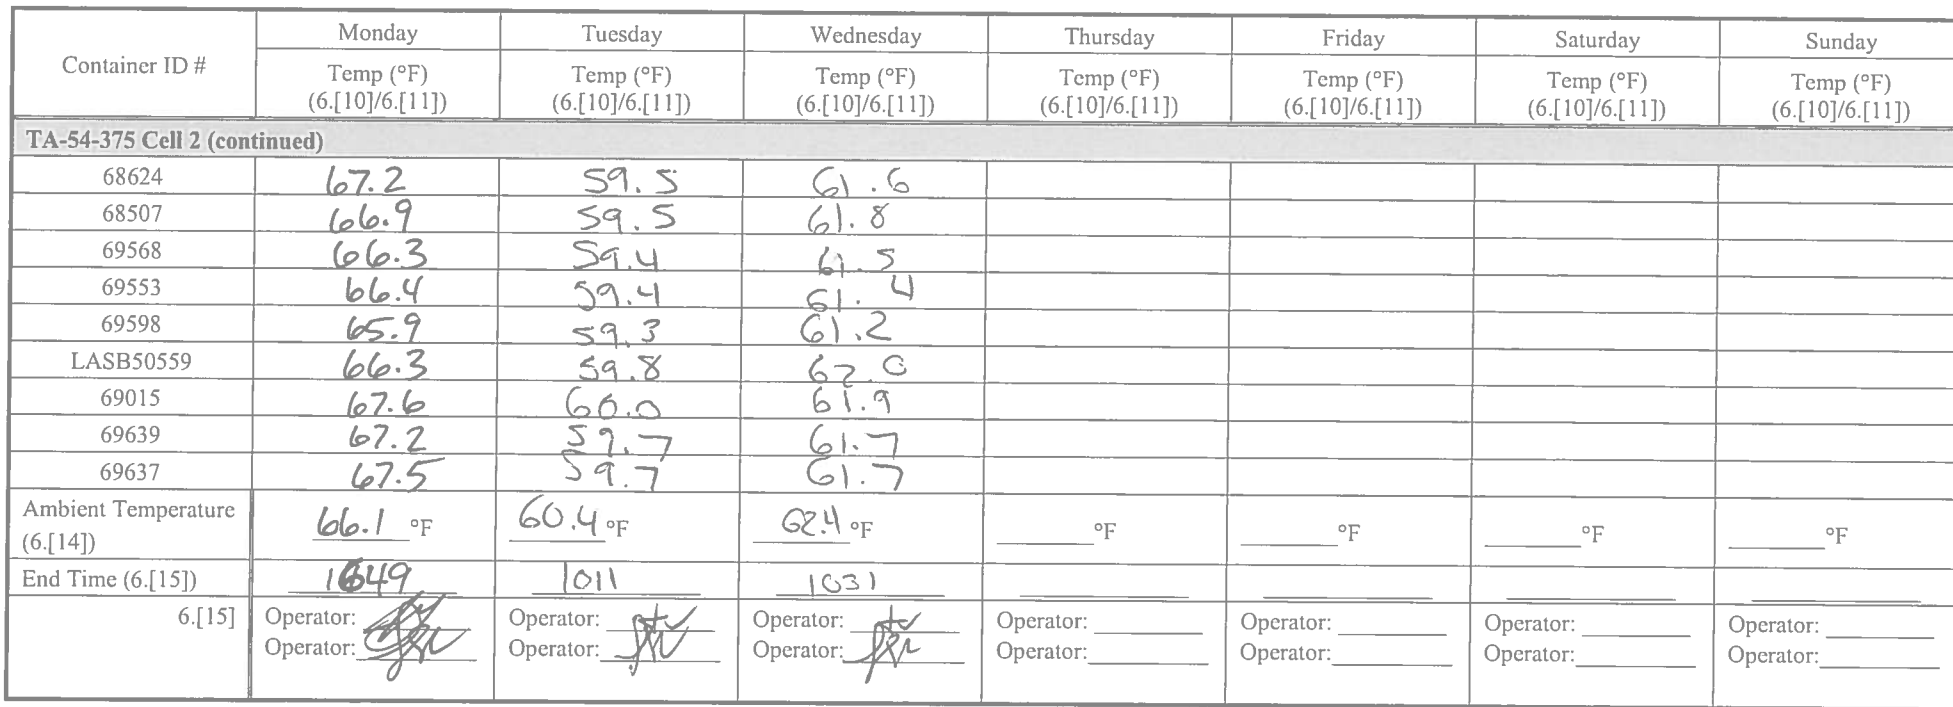 Container ID # Monday Tuesday Wednesday Thursday Friday Saturday Sunday
Temp (°F) Temp (°F) Temp (°F) Temp (°F) Temp (°F) Temp (°F) Temp (°F)
(6.[10]/6.[11]) (6.[10]/6.[11]) (6.[10]/6.[11]) (6.[10]/6.[11]) (6.[10]/6.[11]) (6.[10]/6.[11]) (6.[10]/6.[11])
TA-54-375 Cell 2 (continued)
68624 67.2 59.5 61.6
68507 66.9 59.5 61.8
69568 66.3 59.4 61.5
69553 66.4 59.4 61.4
69598 65.9 59.3 61.2
LASB50559 66.3 59.8 62.0
69015 67.6 60.0 61.9
69639 67.2 59.7 61.7
69637 67.5 59.7 61.7
Ambient Temperature (6.[14]) 66.1 °F 60.4 °F 62.4 °F °F °F °F °F
End Time (6.[15]) 1649 1011 1031
6.[15] Operator: Operator: Operator: Operator: Operator: Operator: Operator:
Operator: Operator: Operator: Operator: Operator: Operator: Operator: